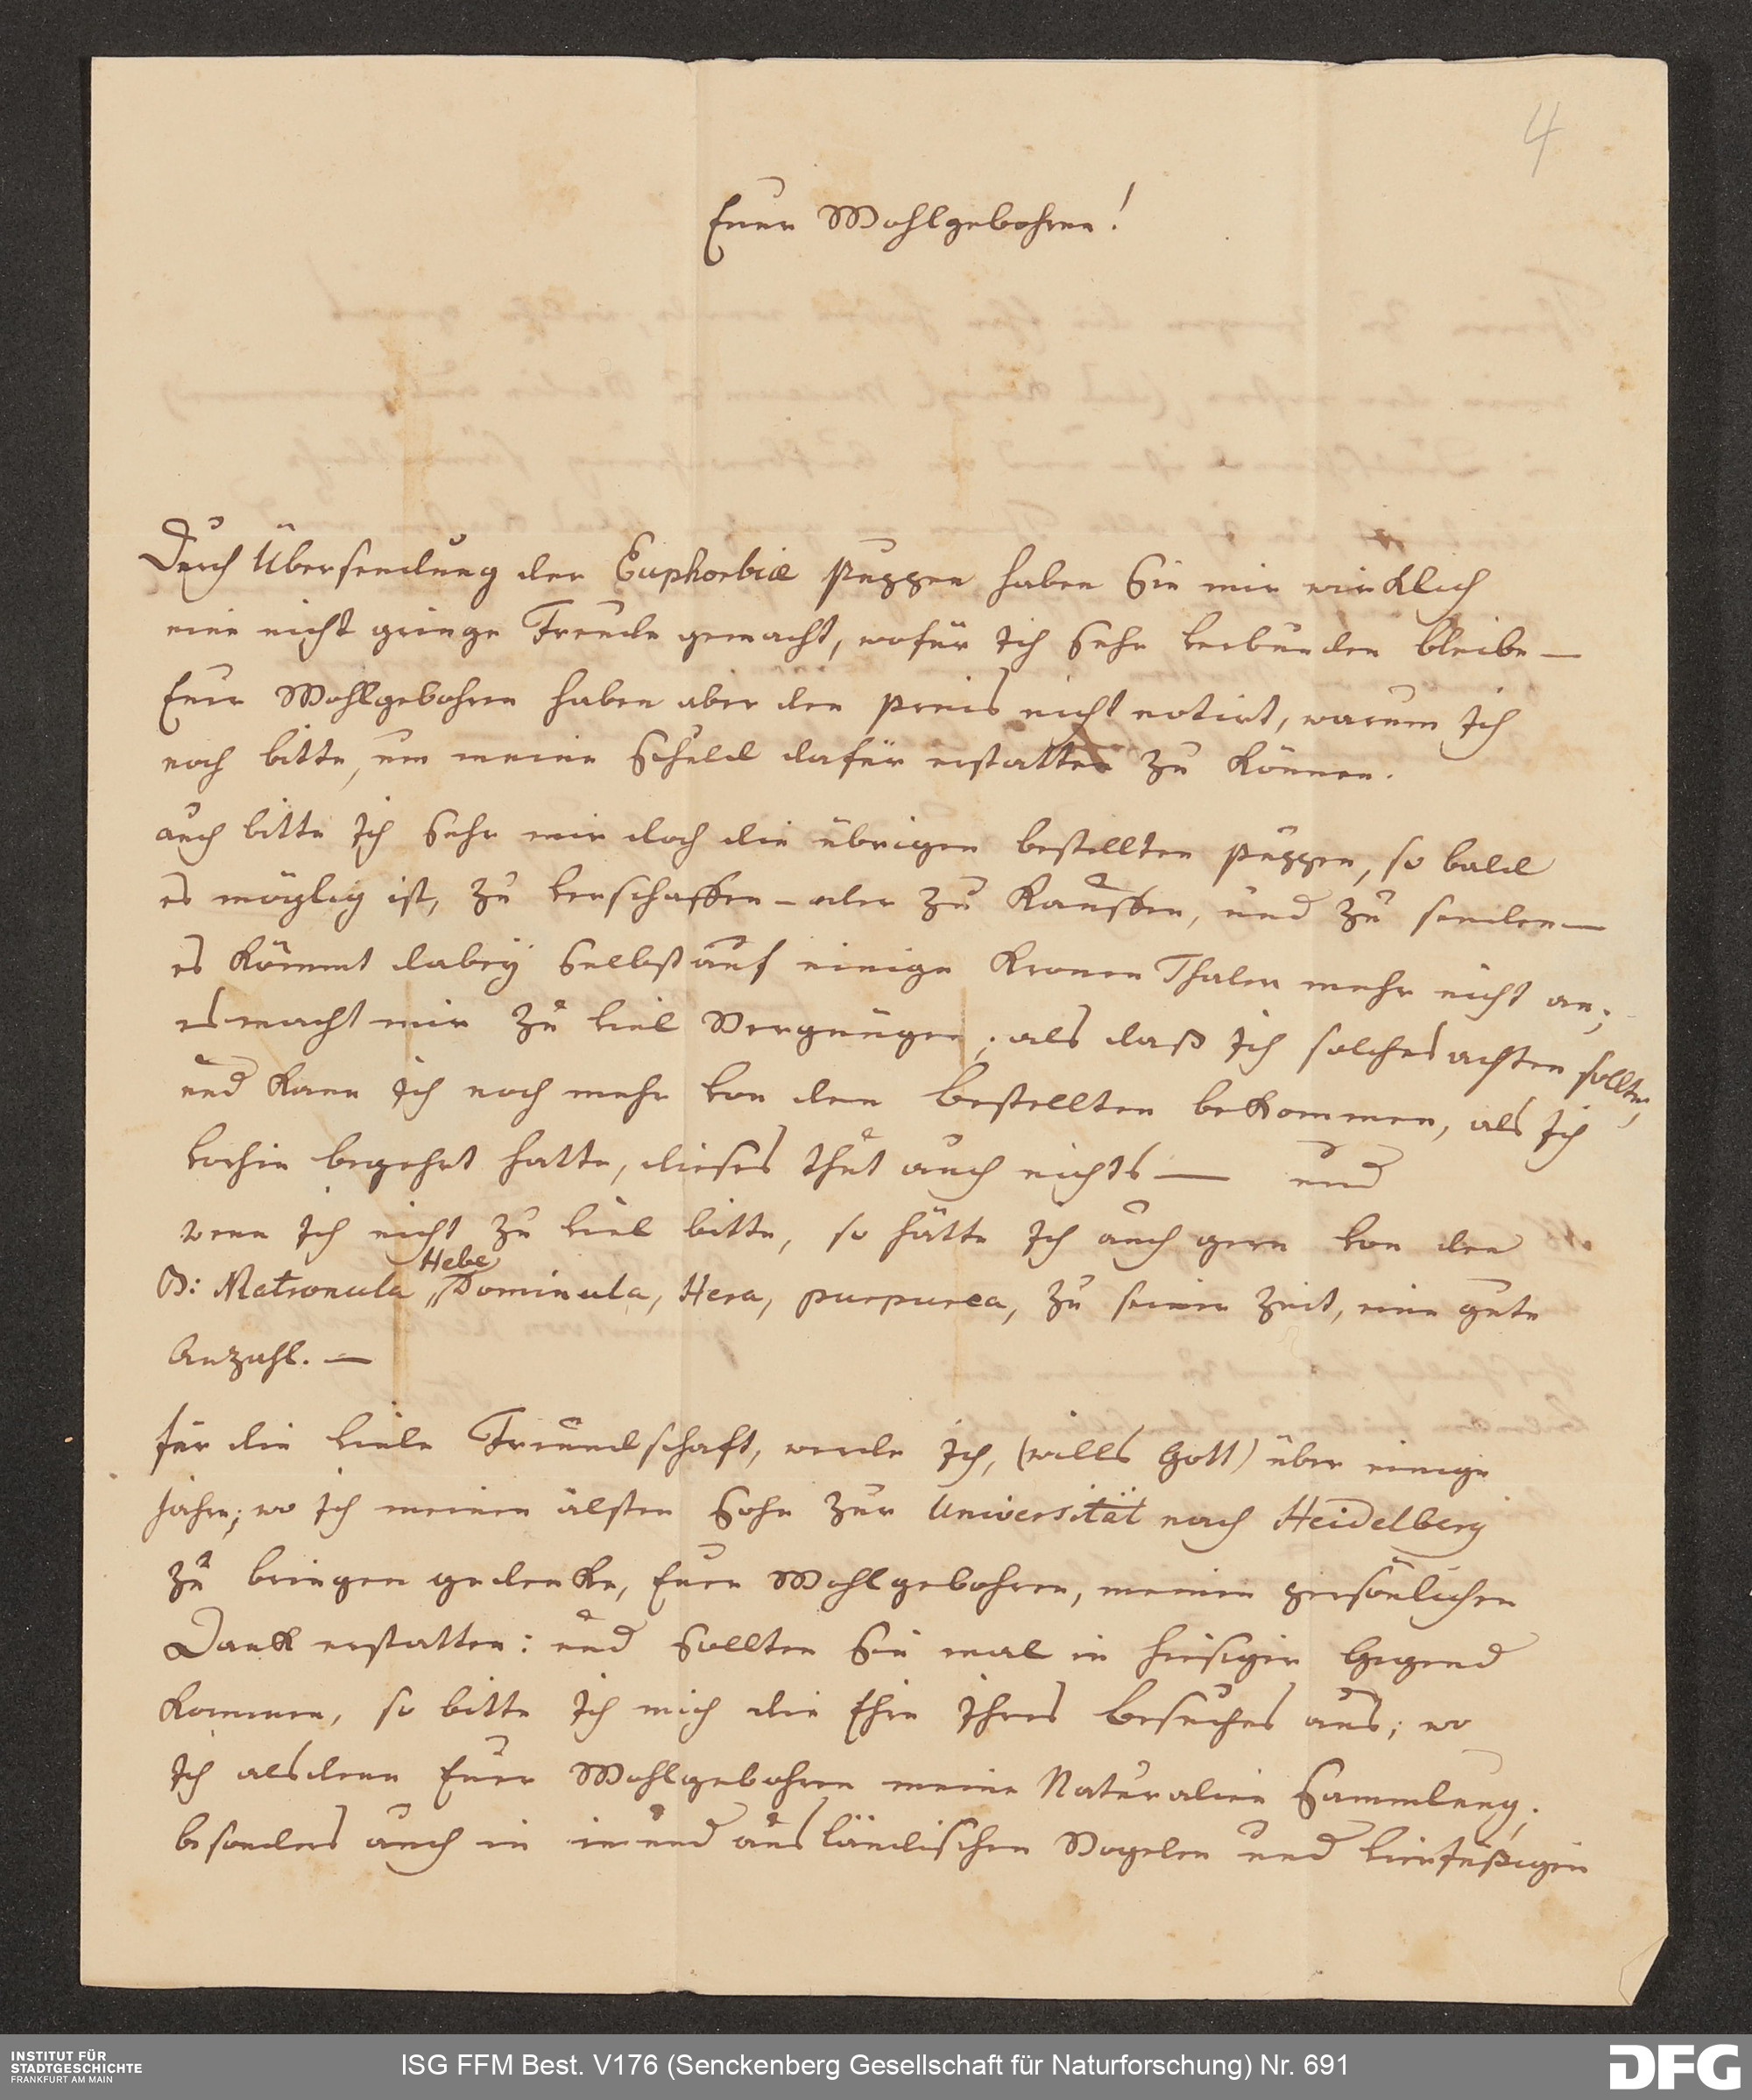 4
Euer Wohlgebohren!
Durch Übersendung der Euphorbiæ puppen haben Sie mir wircklich
eine nicht gringe Freude gemacht, wofür Ich Sehr verbunden bleibe —
Euer Wohlgebohren haben aber den preis nicht notirt, warum Ich
noch bitte, um meine Schuld dafür erstatten zu können.
auch bitte Ich Sehr mir doch die übrigen bestellten puppen, so bald
es möglig ist, zu verschaffen – oder zu kauffen, und zu senden —
es kömmt dabey Selbst auf einige Kronen Thaler mehr nicht an;
es macht mir zu viel Vergnügen, als daß Ich solches achten sollte,
und kann Ich noch mehr von den bestellten bekommen, als Ich
vorhin begehrt hatte, dieses thut auch nichts — und
wenn Ich nicht zu viel bitte, so hätte Ich auch gern von den
Hebe
B: Matronula „Dominula, Hera, purpurea, zu seiner Zeit, eine gute
Anzahl. —
für die viele Freundschaft, werde Ich, (wills Gott) über einige
Jahre; wo Ich meinen älsten Sohn zur Universität nach Heidelberg
zu bringen gedenke, Euer Wohlgebohren, meinen persönlichen
Dank erstatten: und Sollten Sie mal in hiesiger Gegend
kommen, so bitte Ich mich die Ehre Ihres Besuches aus; wo
Ich alsdenn Euer Wohlgebohren meine Naturalien Sammlung,
besonders auch in in und ausländischen Vogelen und vierfüßigen
INSTITUT FÜR
STADTGESCHICHTE
FRANKFURT AM MAIN
ISG FFM Best. V176 (Senckenberg Gesellschaft für Naturforschung) Nr. 691
DFG